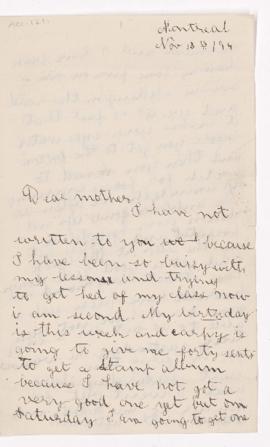 Montreal
Nov 18th /94
Dear mother
I have not
written to you because
I have been so buisy with
my lessons and trying
to get hed of my class now
i am second My birthday
is this week and
going to give me forty sents
to get a stamp album
because I have not got a
very good one yet but on
Saturday I am going to get one